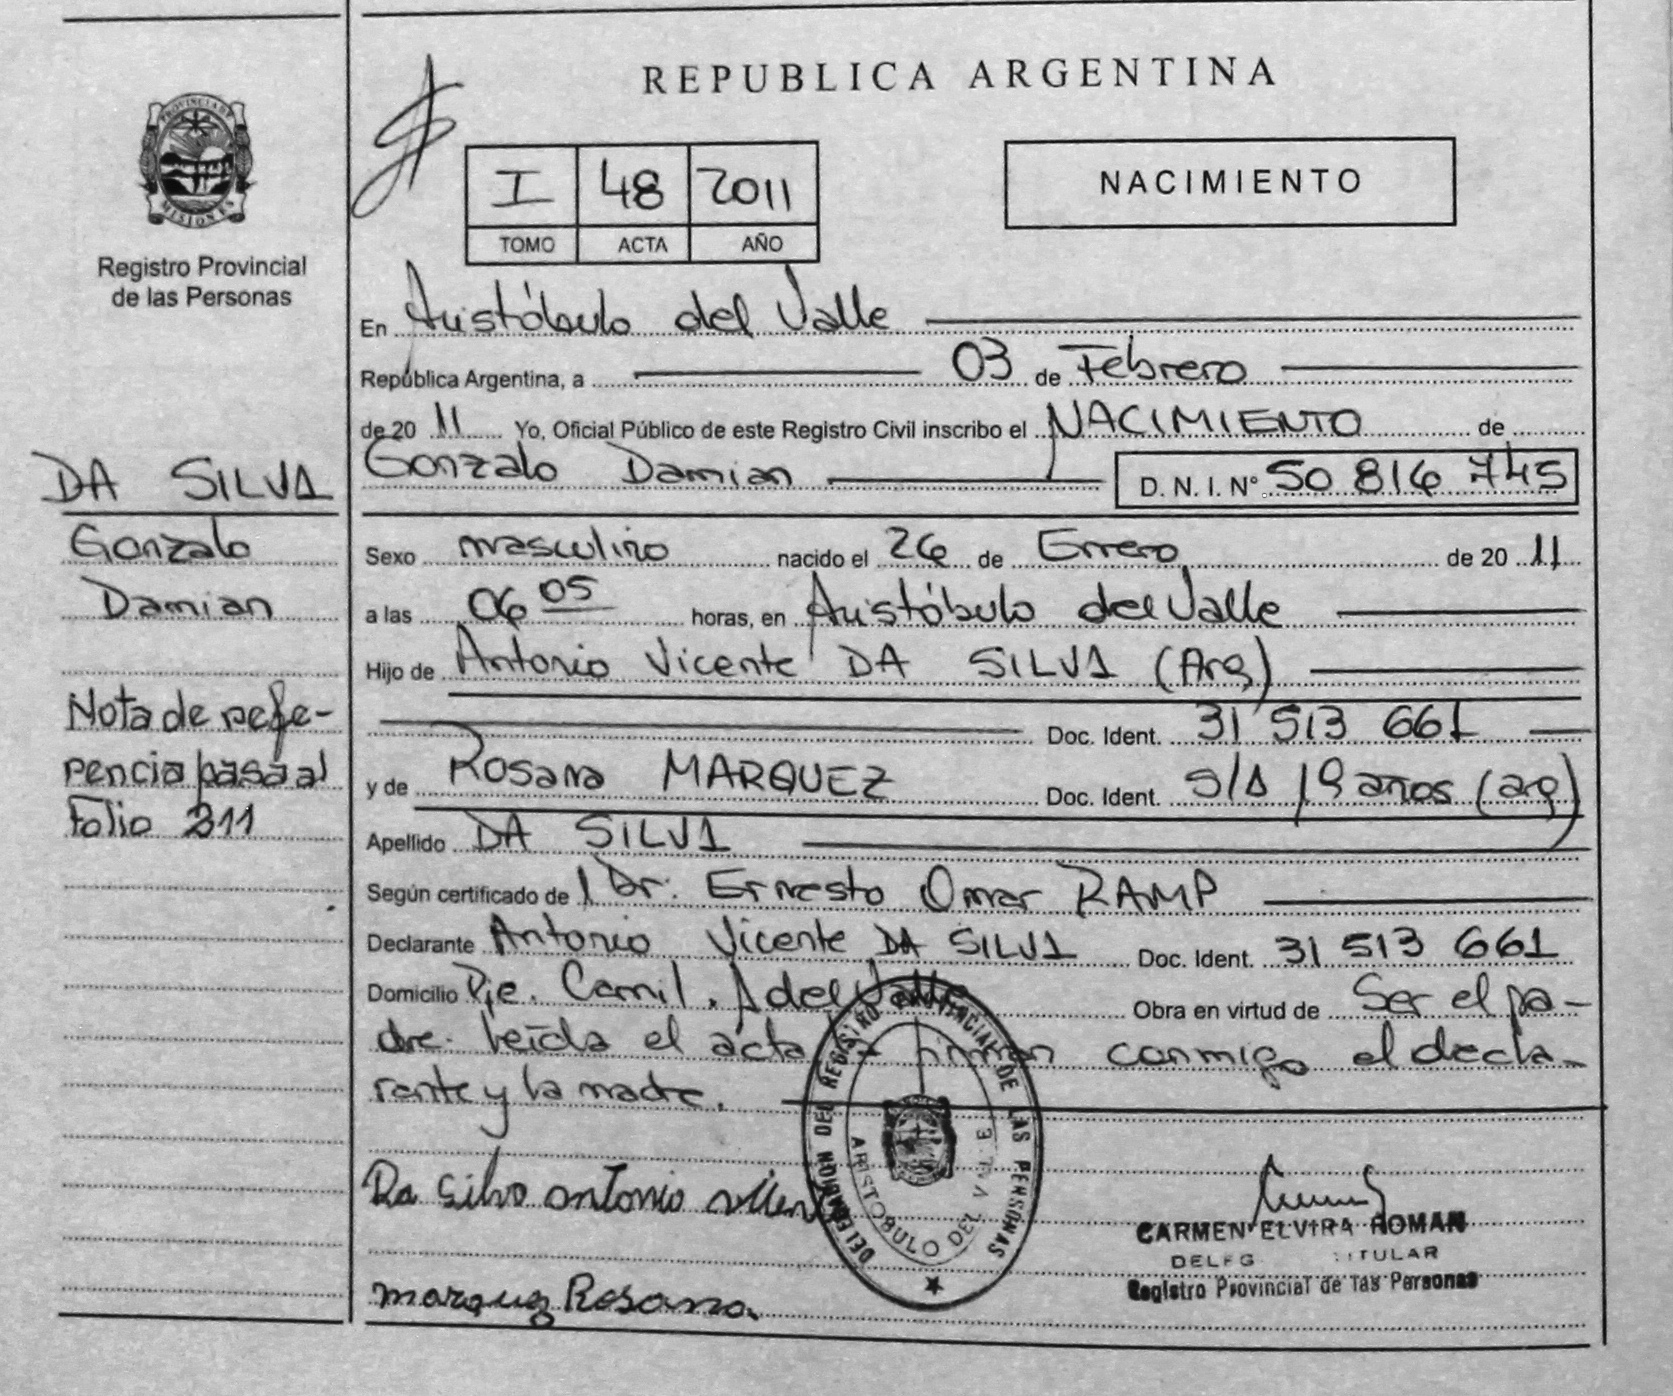 PROVINCIA DE
MISIONES
Registro Provincial
de las Personas
DA SILVA
Gonzalo
Damian
Nota de refe-
rencia pasa al
Folio 311
REPUBLICA ARGENTINA
I 48 2011
TOMO ACTA AÑO
NACIMIENTO
En Aristóbulo del Valle
República Argentina, a 03 de Febrero
de 20 11 Yo, Oficial Público de este Registro Civil inscribo el NACIMIENTO de
Gonzalo Damian D. N. I. N° 50 816 745
Sexo masculino nacido el 26 de Enero de 20 11
a las 06 05 horas, en Aristóbulo del Valle
Hijo de Antonio Vicente DA SILVA (Arg)
Doc. Ident. 31 513 661
y de Rosana MARQUEZ Doc. Ident. S/A 19 años (arg)
Apellido DA SILVA
Según certificado de l Dr. Ernesto Omar RAMP
Declarante Antonio Vicente DA SILVA Doc. Ident. 31 513 661
Domicilio Pje. Carril. A del Valle Obra en virtud de Ser el pa-
dre. Leída el acta firman conmigo el decla-
rante y la madre.
Da Silva antonio
marquez Rosana.
DELEGACION DEL REGISTRO PROVINCIAL DE LAS PERSONAS
ARISTOBULO DEL VALLE
CARMEN ELVIRA ROMAN
TITULAR
Registro Provincial de las Personas